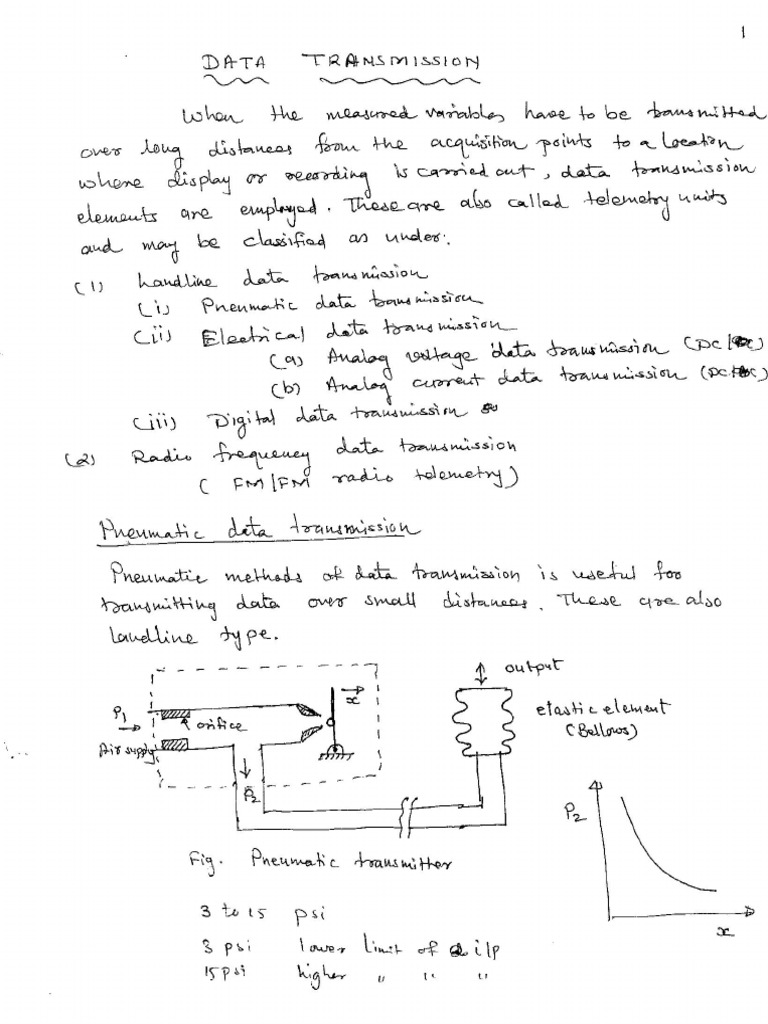 1
DATA TRANSMISSION
When the measured variables have to be transmitted
over long distances from the acquisition points to a location
where display or recording is carried out, data transmission
elements are employed. These are also called telemetry units
and may be classified as under:
(1) Landline data transmission
(i) Pneumatic data transmission
(ii) Electrical data transmission
(a) Analog voltage data transmission (DC/
(b) Analog current data transmission (DC
(iii) Digital data transmission
(2) Radio frequency data transmission
( FM/FM radio telemetry)
Pneumatic data transmission
Pneumatic methods of data transmission is useful for
transmitting data over small distances. These are also
landline type.
output
x
P1
orifice
elastic element
(Bellows)
Air supply
P2
P2
Fig. Pneumatic transmitter
3 to 15 psi
x
3 psi lower limit of i/p
15 psi higher " " "